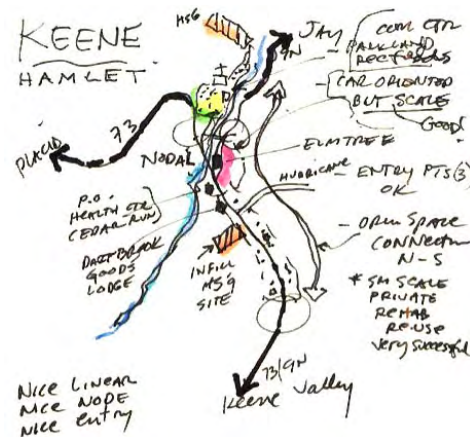 KEENE
HAMLET
HSG
JAY
9N
COM CTR
- PARKLAND
REC FIELDS
- CAR ORIENTED
BUT SCALE
GOOD
PLACID
73
NODAL
ELM TREE
HURRICANE
- ENTRY PTS (3)
OK
P.O.
HEALTH CTR
CEDAR RUN
DARTBROOK
GOODS
LODGE
INFILL
HSG
SITE
- OPEN SPACE
CONNECTION
N-S
* SM SCALE
PRIVATE
REHAB
RE-USE
Very successful
73/9N
Keene Valley
NICE LINEAR
NICE NODE
NICE ENTRY